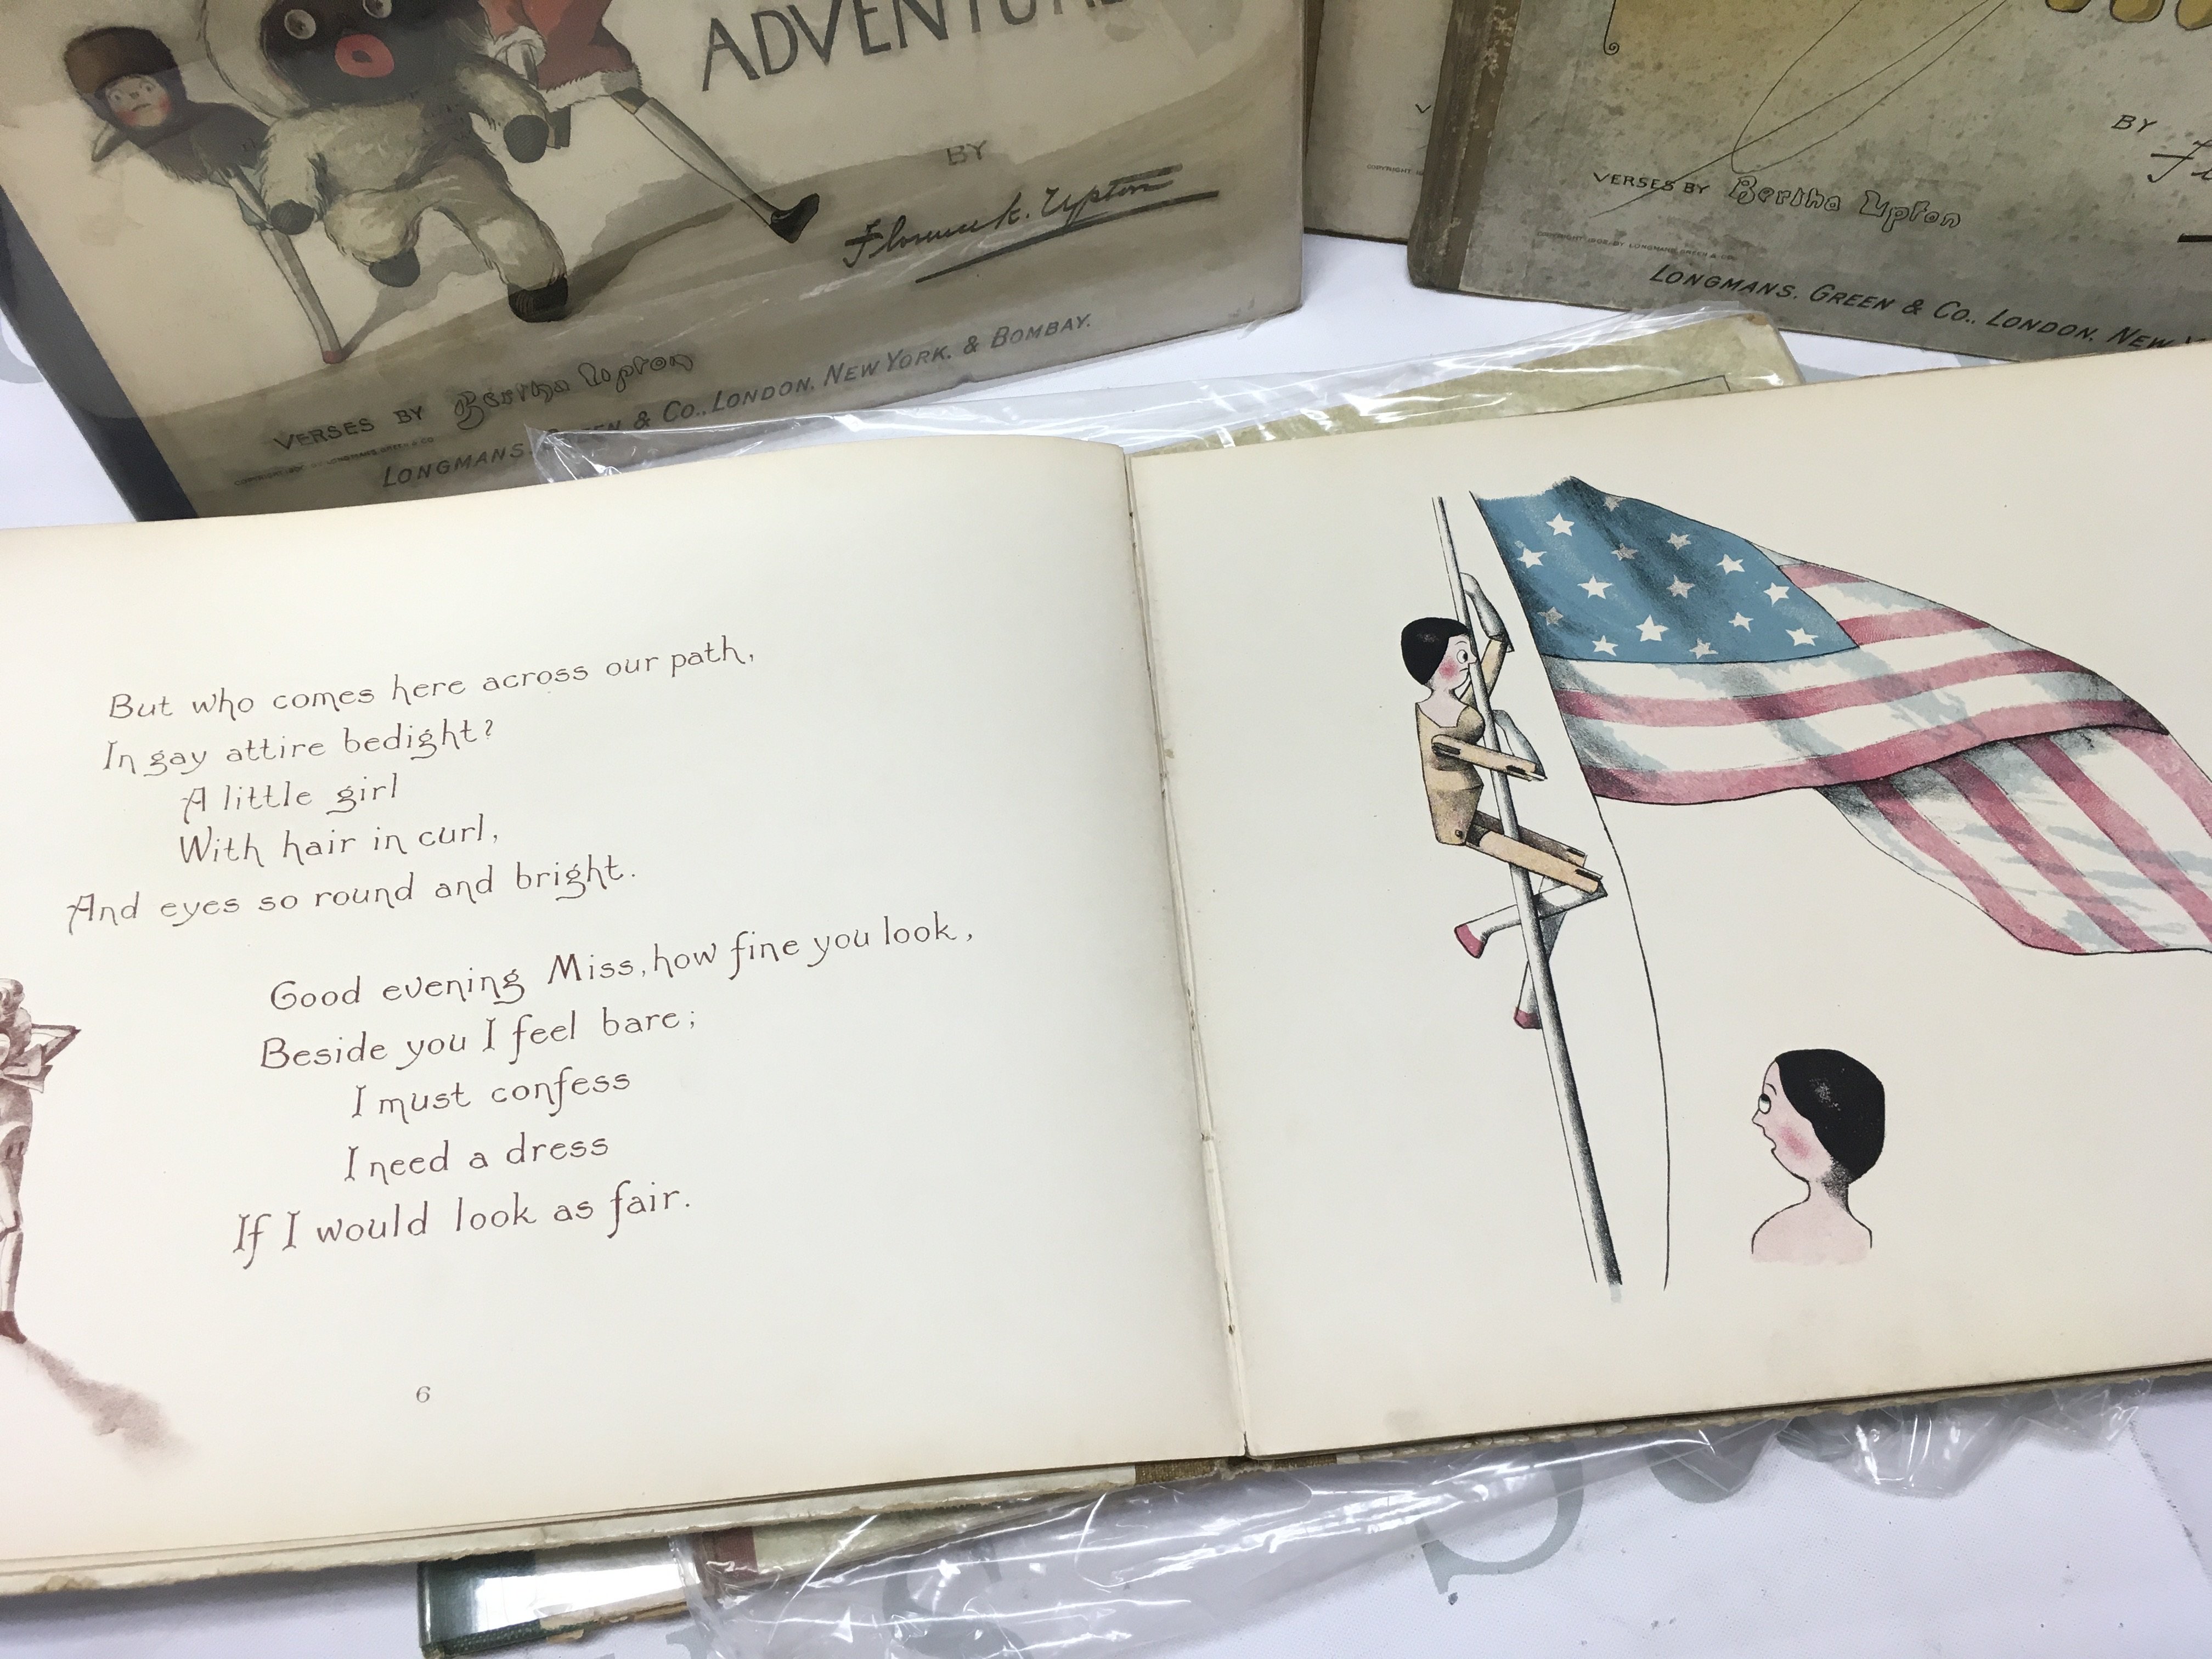 BY
Florence K. Upton
VERSES BY Bertha Upton
LONGMANS, GREEN & CO., LONDON, NEW YORK, & BOMBAY.
BY
VERSES BY Bertha Upton
COPYRIGHT
LONGMANS, GREEN & CO., LONDON, NEW
But who comes here across our path,
In gay attire bedight?
A little girl
With hair in curl,
And eyes so round and bright.
Good evening Miss, how fine you look,
Beside you I feel bare;
I must confess
I need a dress
If I would look as fair.
6